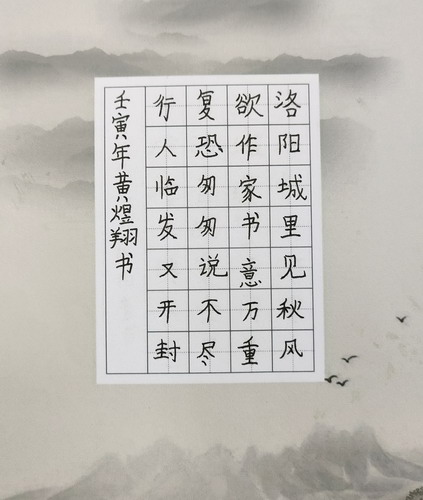 洛阳城里见秋风
欲作家书意万重
复恐匆匆说不尽
行人临发又开封
壬寅年黄煜翔书